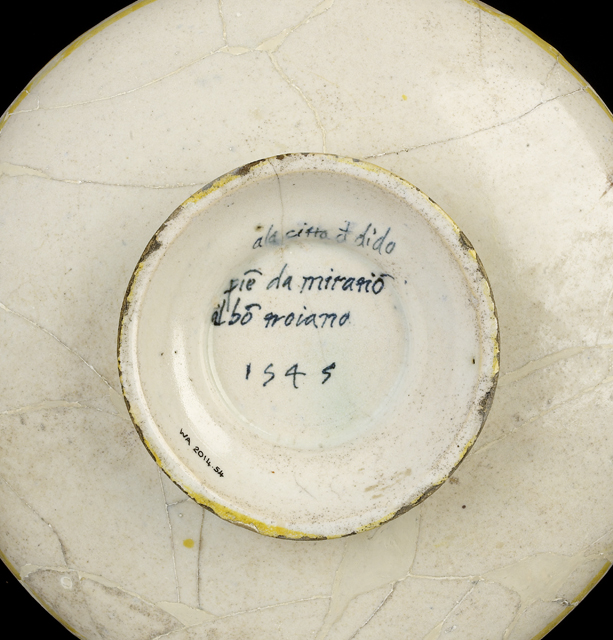 ala citta đ dido
piē da mirariō
al bō troiano
1545
WA 2014.54